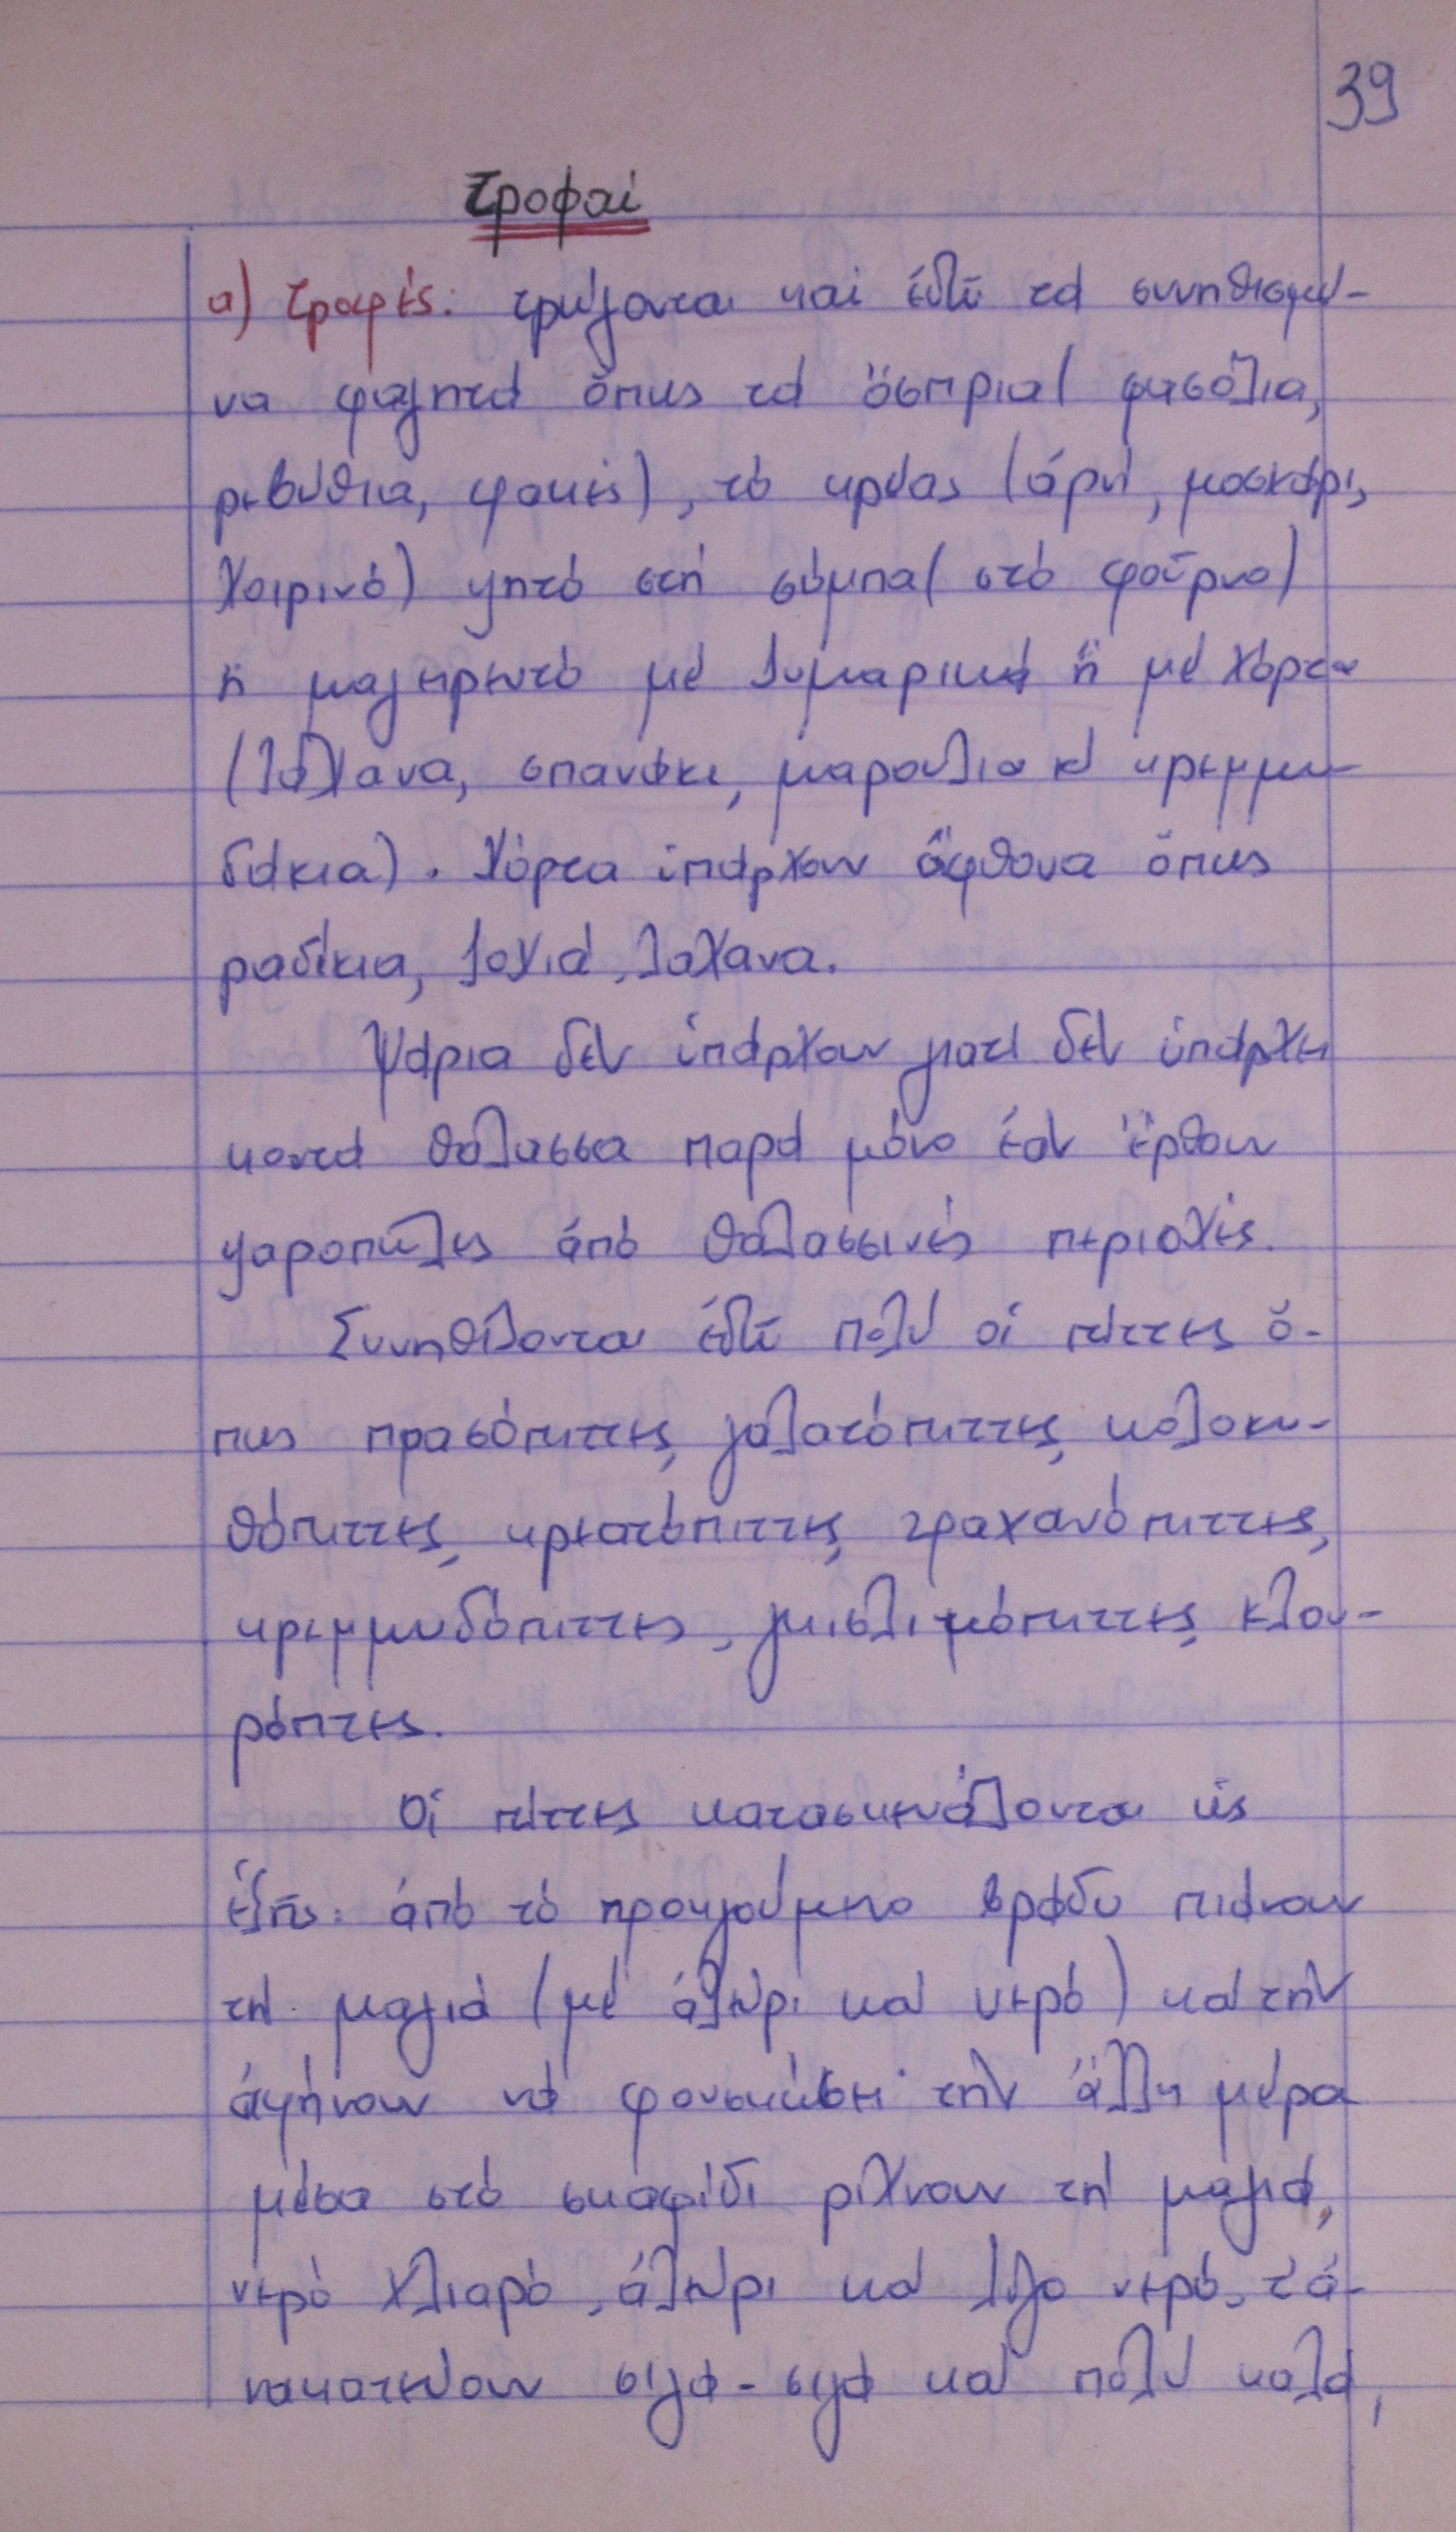 39
Τροφαί
α) Τροφές: τρώγονται καί ἐδῶ τά συνηθισμέ-
να φαγητά ὅπως τά ὄσπρια (φασόλια,
ρεβύθια, φακές), τό κρέας (ἀρνί, μοσχάρι,
χοιρινό) ψητό στή σόμπα (στό φοῦρνο)
ἤ μαγειρευτό μέ ζυμαρικά ἤ μέ χόρτα
(λάχανα, σπανάκι, μαρούλια κ' κρεμμυ-
δάκια). Χόρτα ὑπάρχουν ἄφθονα ὅπως
ραδίκια, ζοχιά, λάχανα.
Ψάρια δέν ὑπάρχουν γιατί δέν ὑπάρχει
κοντά θάλασσα παρά μόνο ἐάν ἔρθουν
ψαροπῶλες ἀπό θαλασσινές περιοχές.
Συνηθίζονται ἐδῶ πολύ οἱ πίττες ὅ-
πως πρασόπιττες, γαλατόπιττες, κολοκυ-
θόπιττες, κρεατόπιττες, τραχανόπιττες,
κρεμμυδόπιττες, γκισλιμόπιττες, κλου-
ρόπιτες.
Οἱ πίττες κατασκευάζονται ὡς
ἑξῆς: ἀπό τό προηγούμενο βράδυ πιάνουν
τή μαγιά (μέ ἀλεύρι καί νερό) καί τήν
ἀφήνουν νά φουσκώσει· τήν ἄλλη μέρα
μέσα στό σκαφίδι ρίχνουν τή μαγιά,
νερό χλιαρό, ἀλεύρι καί λίγο νερό, τά
νακατεύουν σιγά-σιγά καί πολύ καλά,